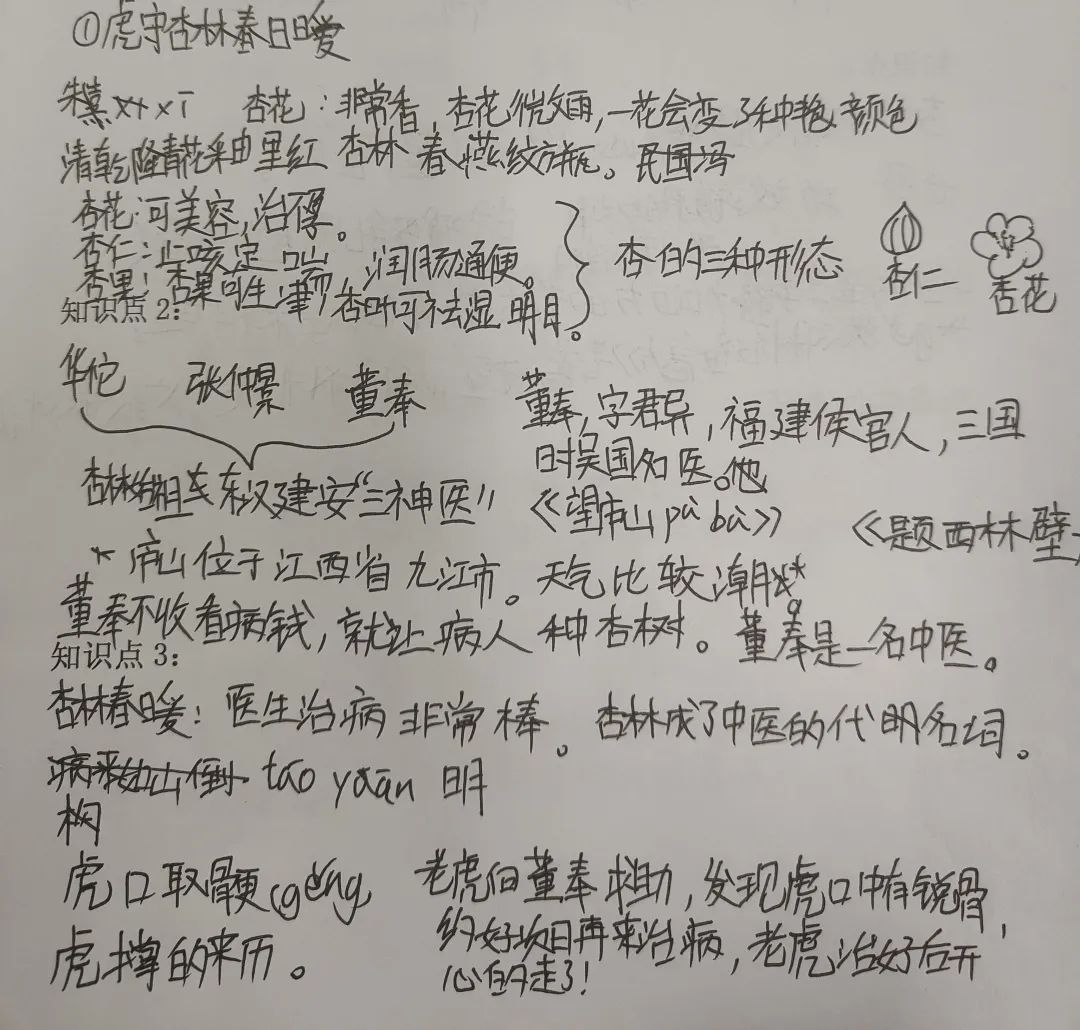 ①虎守杏林春日暖
朱熹 xī 杏花：非常香，杏花微雨，一花会变了种艳颜色
清乾隆青花釉里红 杏林春燕纹方瓶。民国冯
杏花：可美容，治
杏仁：止咳定喘，润肠通便。
杏果：杏果可生津，杏叶可祛湿明目。
杏的三种形态
杏仁
杏花
知识点2：
华佗 张仲景 董奉
杏林始祖 东汉建安“三神医”
董奉，字君异，福建候官人，三国
时吴国名医。他
《望庐山pù bù》 《题西林壁
*庐山位于江西省九江市。天气比较潮
董奉不收看病钱，就让病人种杏树。董奉是一名中医。
知识点3：
杏林春暖：医生治病非常棒。杏林成了中医的代明名词。
病来如山倒 táo yuān 明
构
虎口取骾(gěng)
虎撑的来历。
老虎向董奉求助，发现虎口中有锐骨，
约好次日再来治病，老虎治好后开
心的走了！